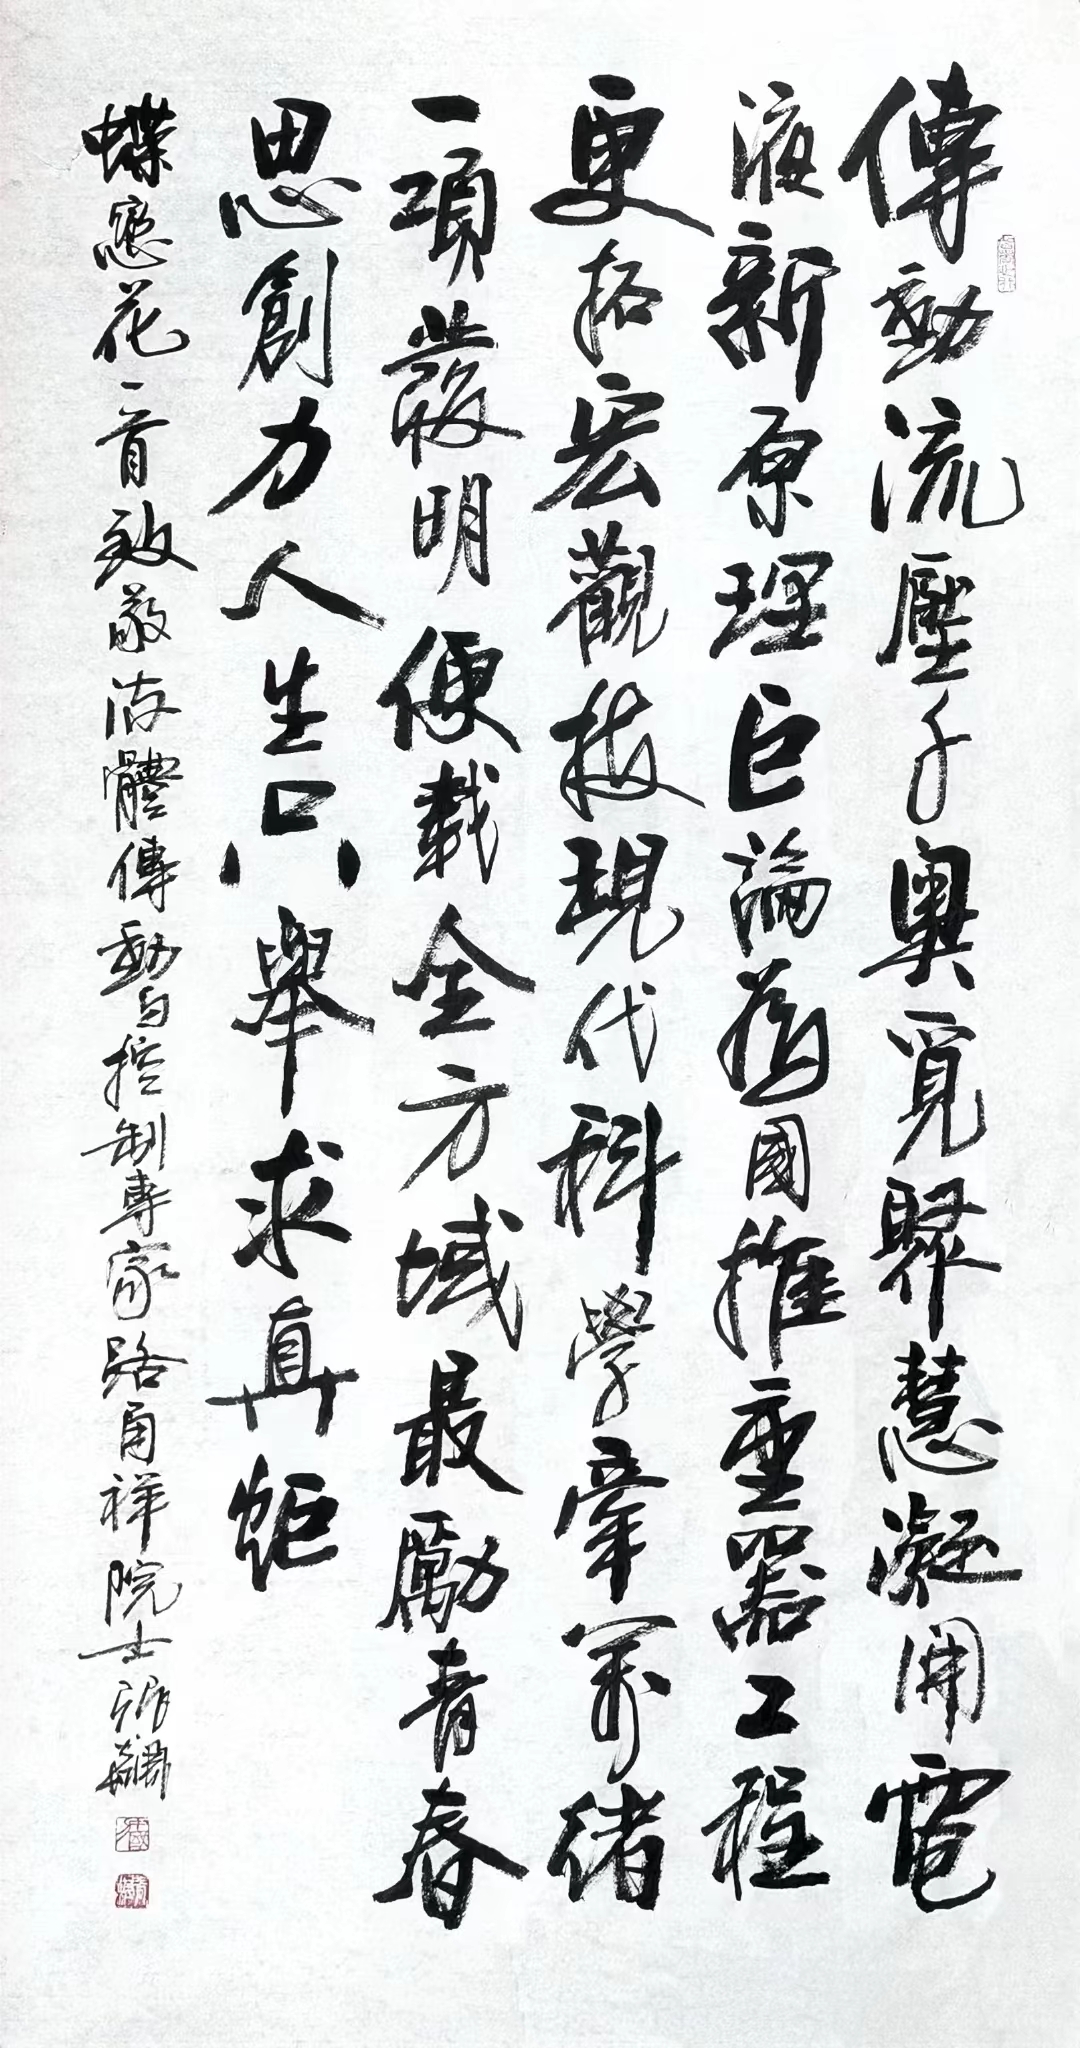 傳動流壓千奧覓聚慧凝開電
液新原理巨論舊國推重器工程
更拓宏觀技現代科學牽萬緒
一項發明便載全方域最勵青春
思創力人生只舉求真炬
蝶戀花一首致敬液體傳動与控制專家路甬祥院士張